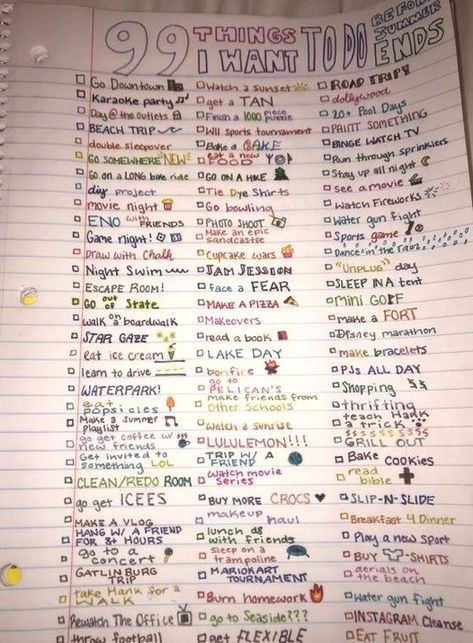 99 THINGS I WANT TO DO BEFORE SUMMER ENDS
Go Downtown
Karaoke party
Day @ the outlets
BEACH TRIP
double sleepover
GO SOMEWHERE NEW
Go on a LONG bike ride
diy project
movie night
ENO with FRIENDS
Game night!
Draw with Chalk
Night Swim
ESCAPE ROOM!
GO out of State
walk on a boardwalk
STAR GAZE
eat ice cream
learn to drive
WATERPARK!
eat popsicles
Make a summer playlist
go get coffee w/ new friends
Get invited to something LOL
CLEAN/REDO ROOM
go get ICEES
MAKE A VLOG
HANG W/ A FRIEND FOR 8+ HOURS
go to a concert
GATLINBURG TRIP
take Hank for a WALK
Rewatch The Office
throw football
Watch a SUNSET
get a TAN
Finish a 1000 piece puzzle
Wii Sports tournament
Bake a CAKE
Eat a new FOOD
GO ON A HIKE
Tie Dye Shirts
Go bowling
PHOTO SHOOT
Make an epic sandcastle
Cupcake wars
JAM SESSION
face a FEAR
MAKE A PIZZA
Makeovers
read a book
LAKE DAY
bonfire
go to PELICAN'S
make friends from Other Schools
Watch a Sunrise
LULULEMON!!!
TRIP W/ A FRIEND
watch movie series
BUY MORE CROCS
makeup haul
lunch d8 with friends
Sleep on a trampoline
MARIOKART TOURNAMENT
Burn homework
go to Seaside???
get FLEXIBLE
ROAD TRIP!
dollywood
20+ Pool Days
PAINT SOMETHING
BINGE WATCH TV
Run through sprinklers
Stay up all night
see a movie
Watch Fireworks
Water gun fight
Sports game
Dance in the rain
"UNPLUG" day
SLEEP IN a tent
mini GOLF
make a FORT
Disney marathon
make bracelets
PJs ALL DAY
Shopping $$
thrifting
teach Hank a trick
$$$$$$$$$$$
GRILL OUT
Bake COOKIES
read bible
SLIP-N-SLIDE
Breakfast 4 Dinner
Play a new sport
BUY -SHIRTS
aerials on the beach
Water gun fight
INSTAGRAM Cleanse
EAT FRUIT